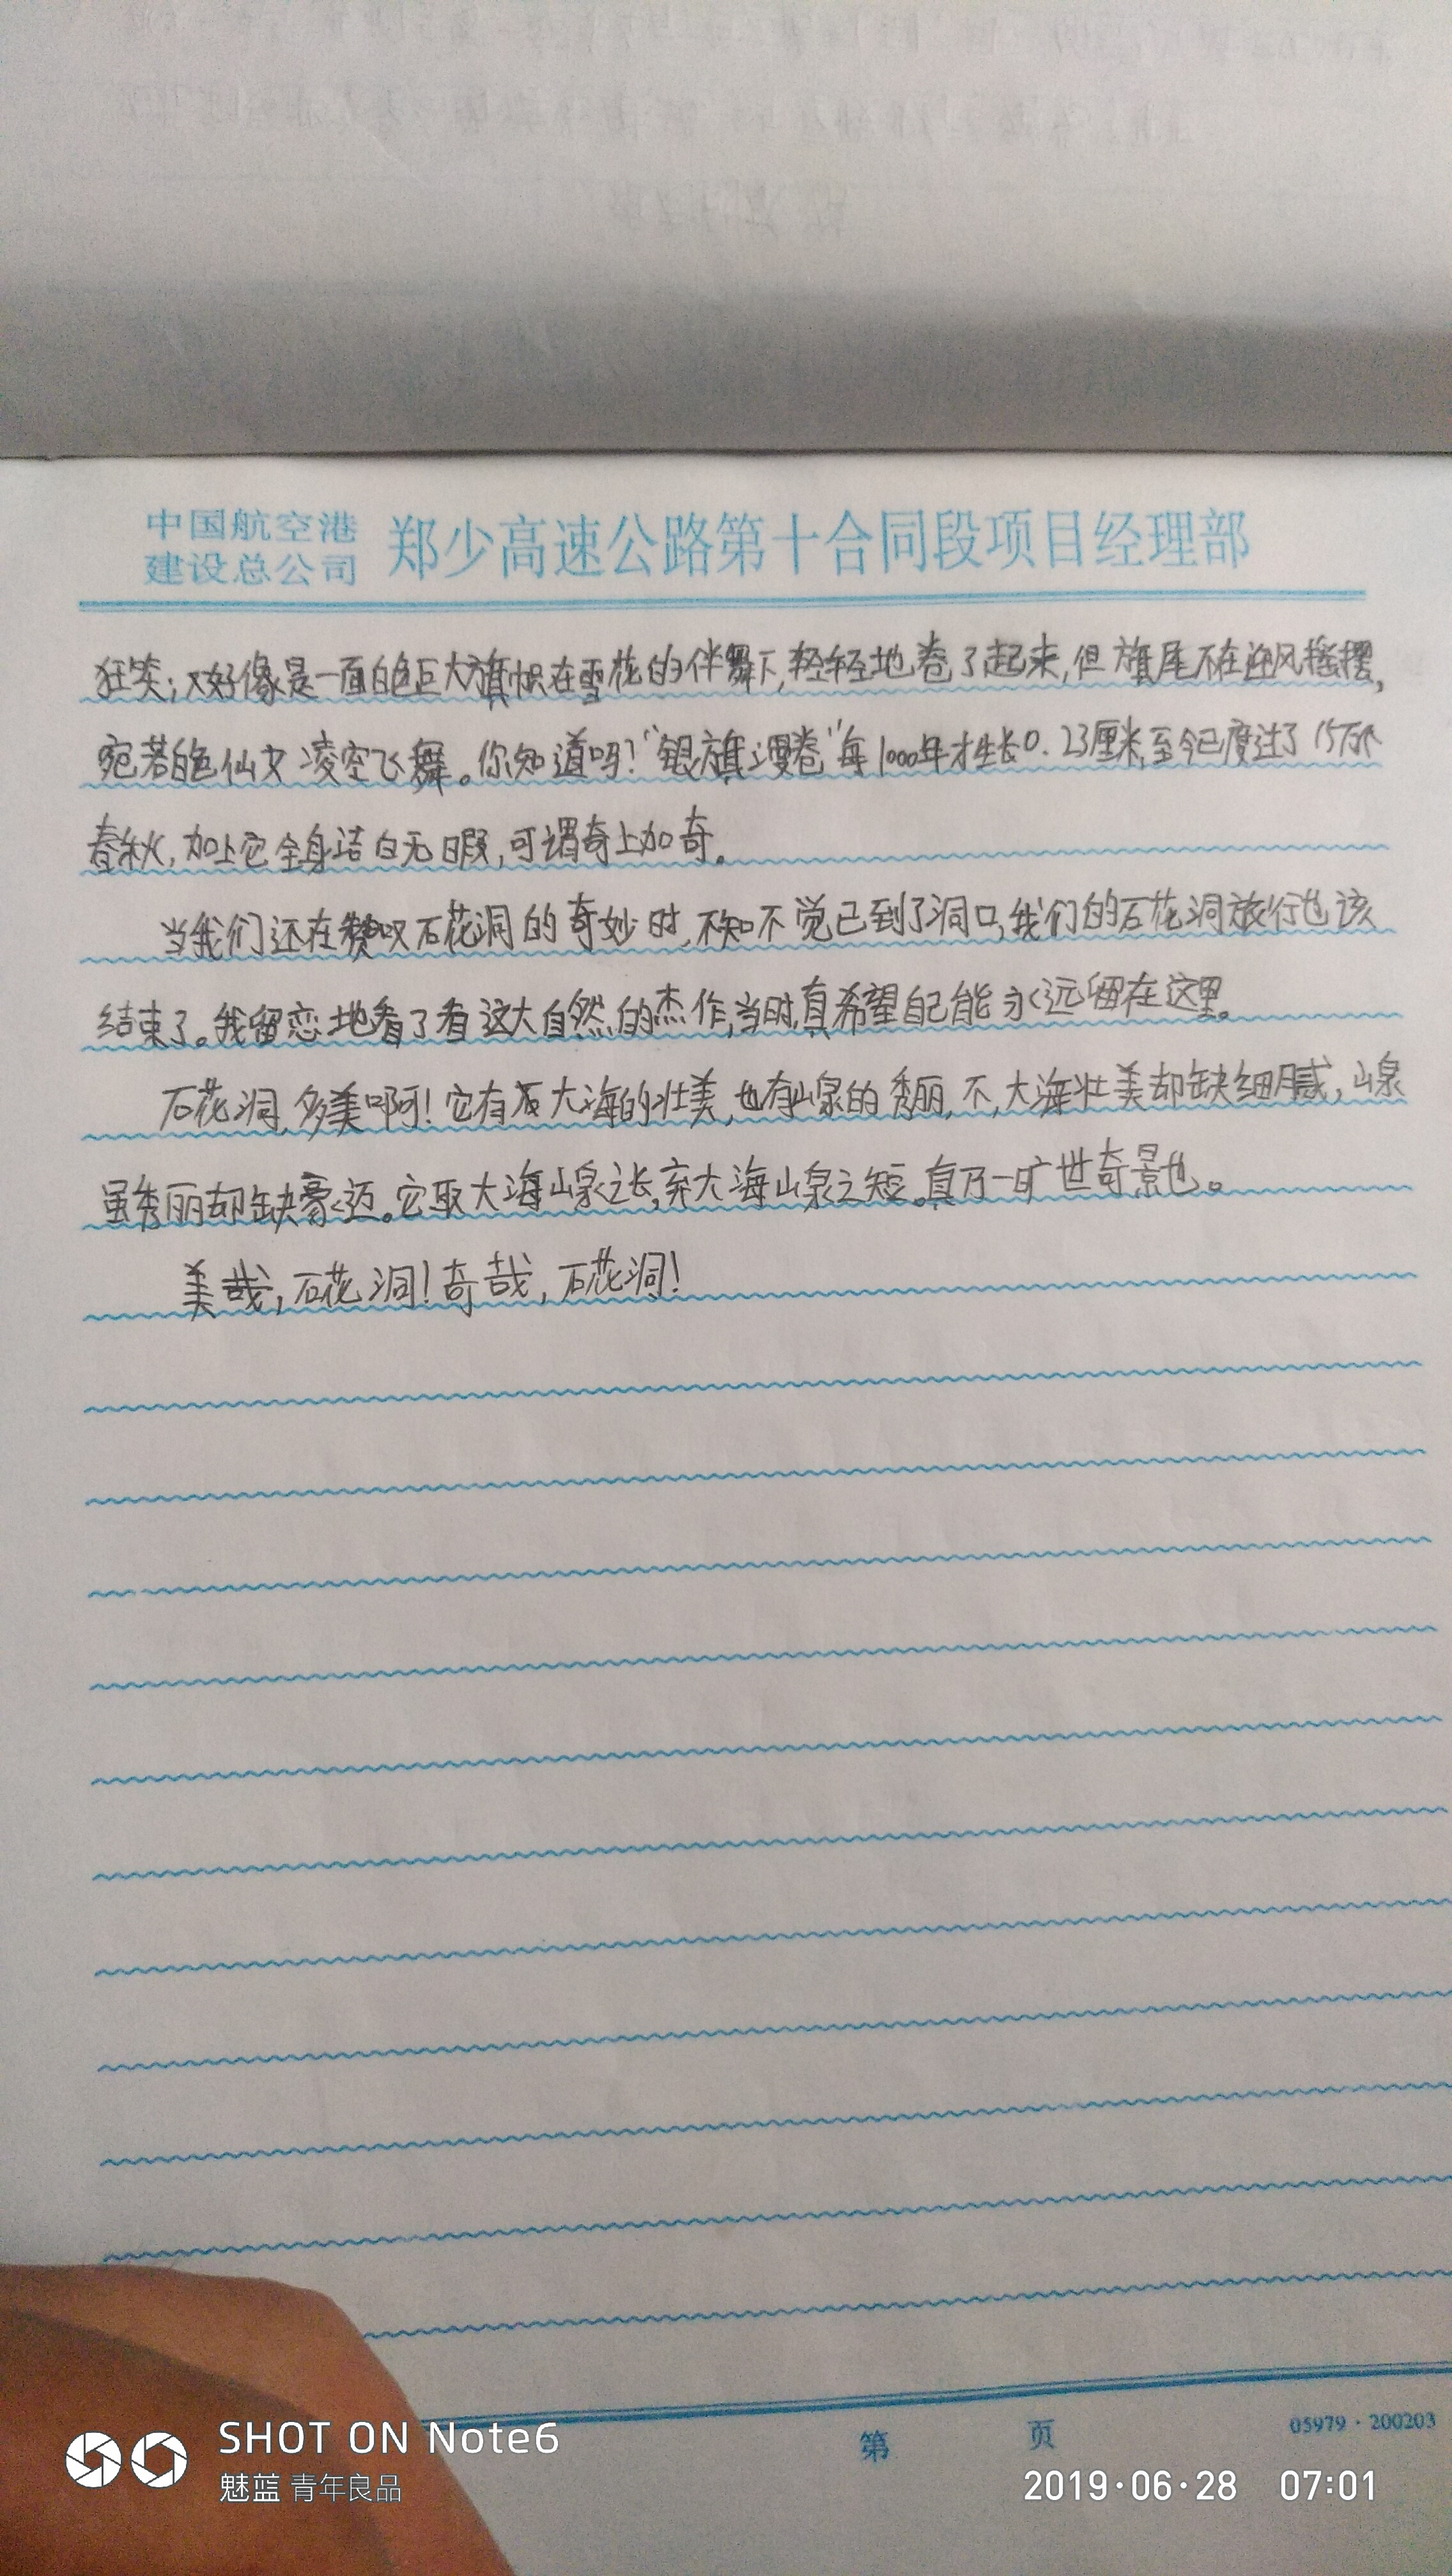 中国航空港
建设总公司
郑少高速公路第十合同段项目经理部
狂笑;又好像是一面白色巨大旗帜在雪花的伴舞下,轻轻地卷了起来,但旗尾不在迎风摇摆,
宛若白色仙女凌空飞舞。你知道吗?“银旗漫卷”每1000年才生长0.23厘米,至今已度过了15万个
春秋,加上它全身洁白无暇,可谓奇上加奇。
当我们还在赞叹石花洞的奇妙时,不知不觉已到了洞口,我们的石花洞旅行也该
结束了。我留恋地看了看这大自然的杰作,当时,真希望自己能永远留在这里。
石花洞,多美啊!它有大海的壮美,也有山泉的秀丽,不,大海壮美却缺细腻,山泉
虽秀丽却缺豪迈。它取大海山泉之长,弃大海山泉之短。真乃一旷世奇景也。
美哉,石花洞!奇哉,石花洞!
第 页
05979·200203
SHOT ON Note6
魅蓝 青年良品
2019·06·28 07:01